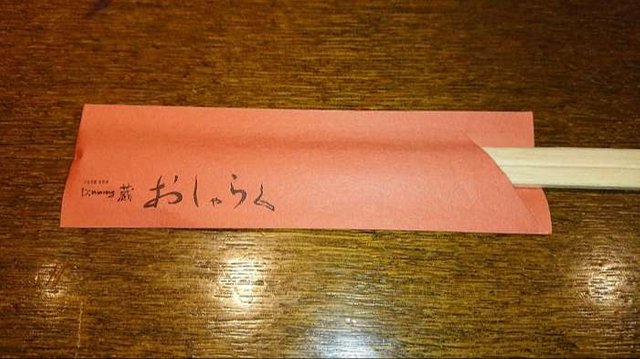 Dinning 蔵 おしゃらく